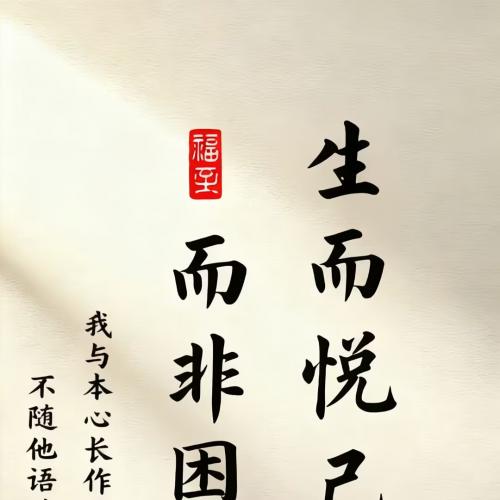 生而悦己
福至
而非困
我与本心长作
不随他语